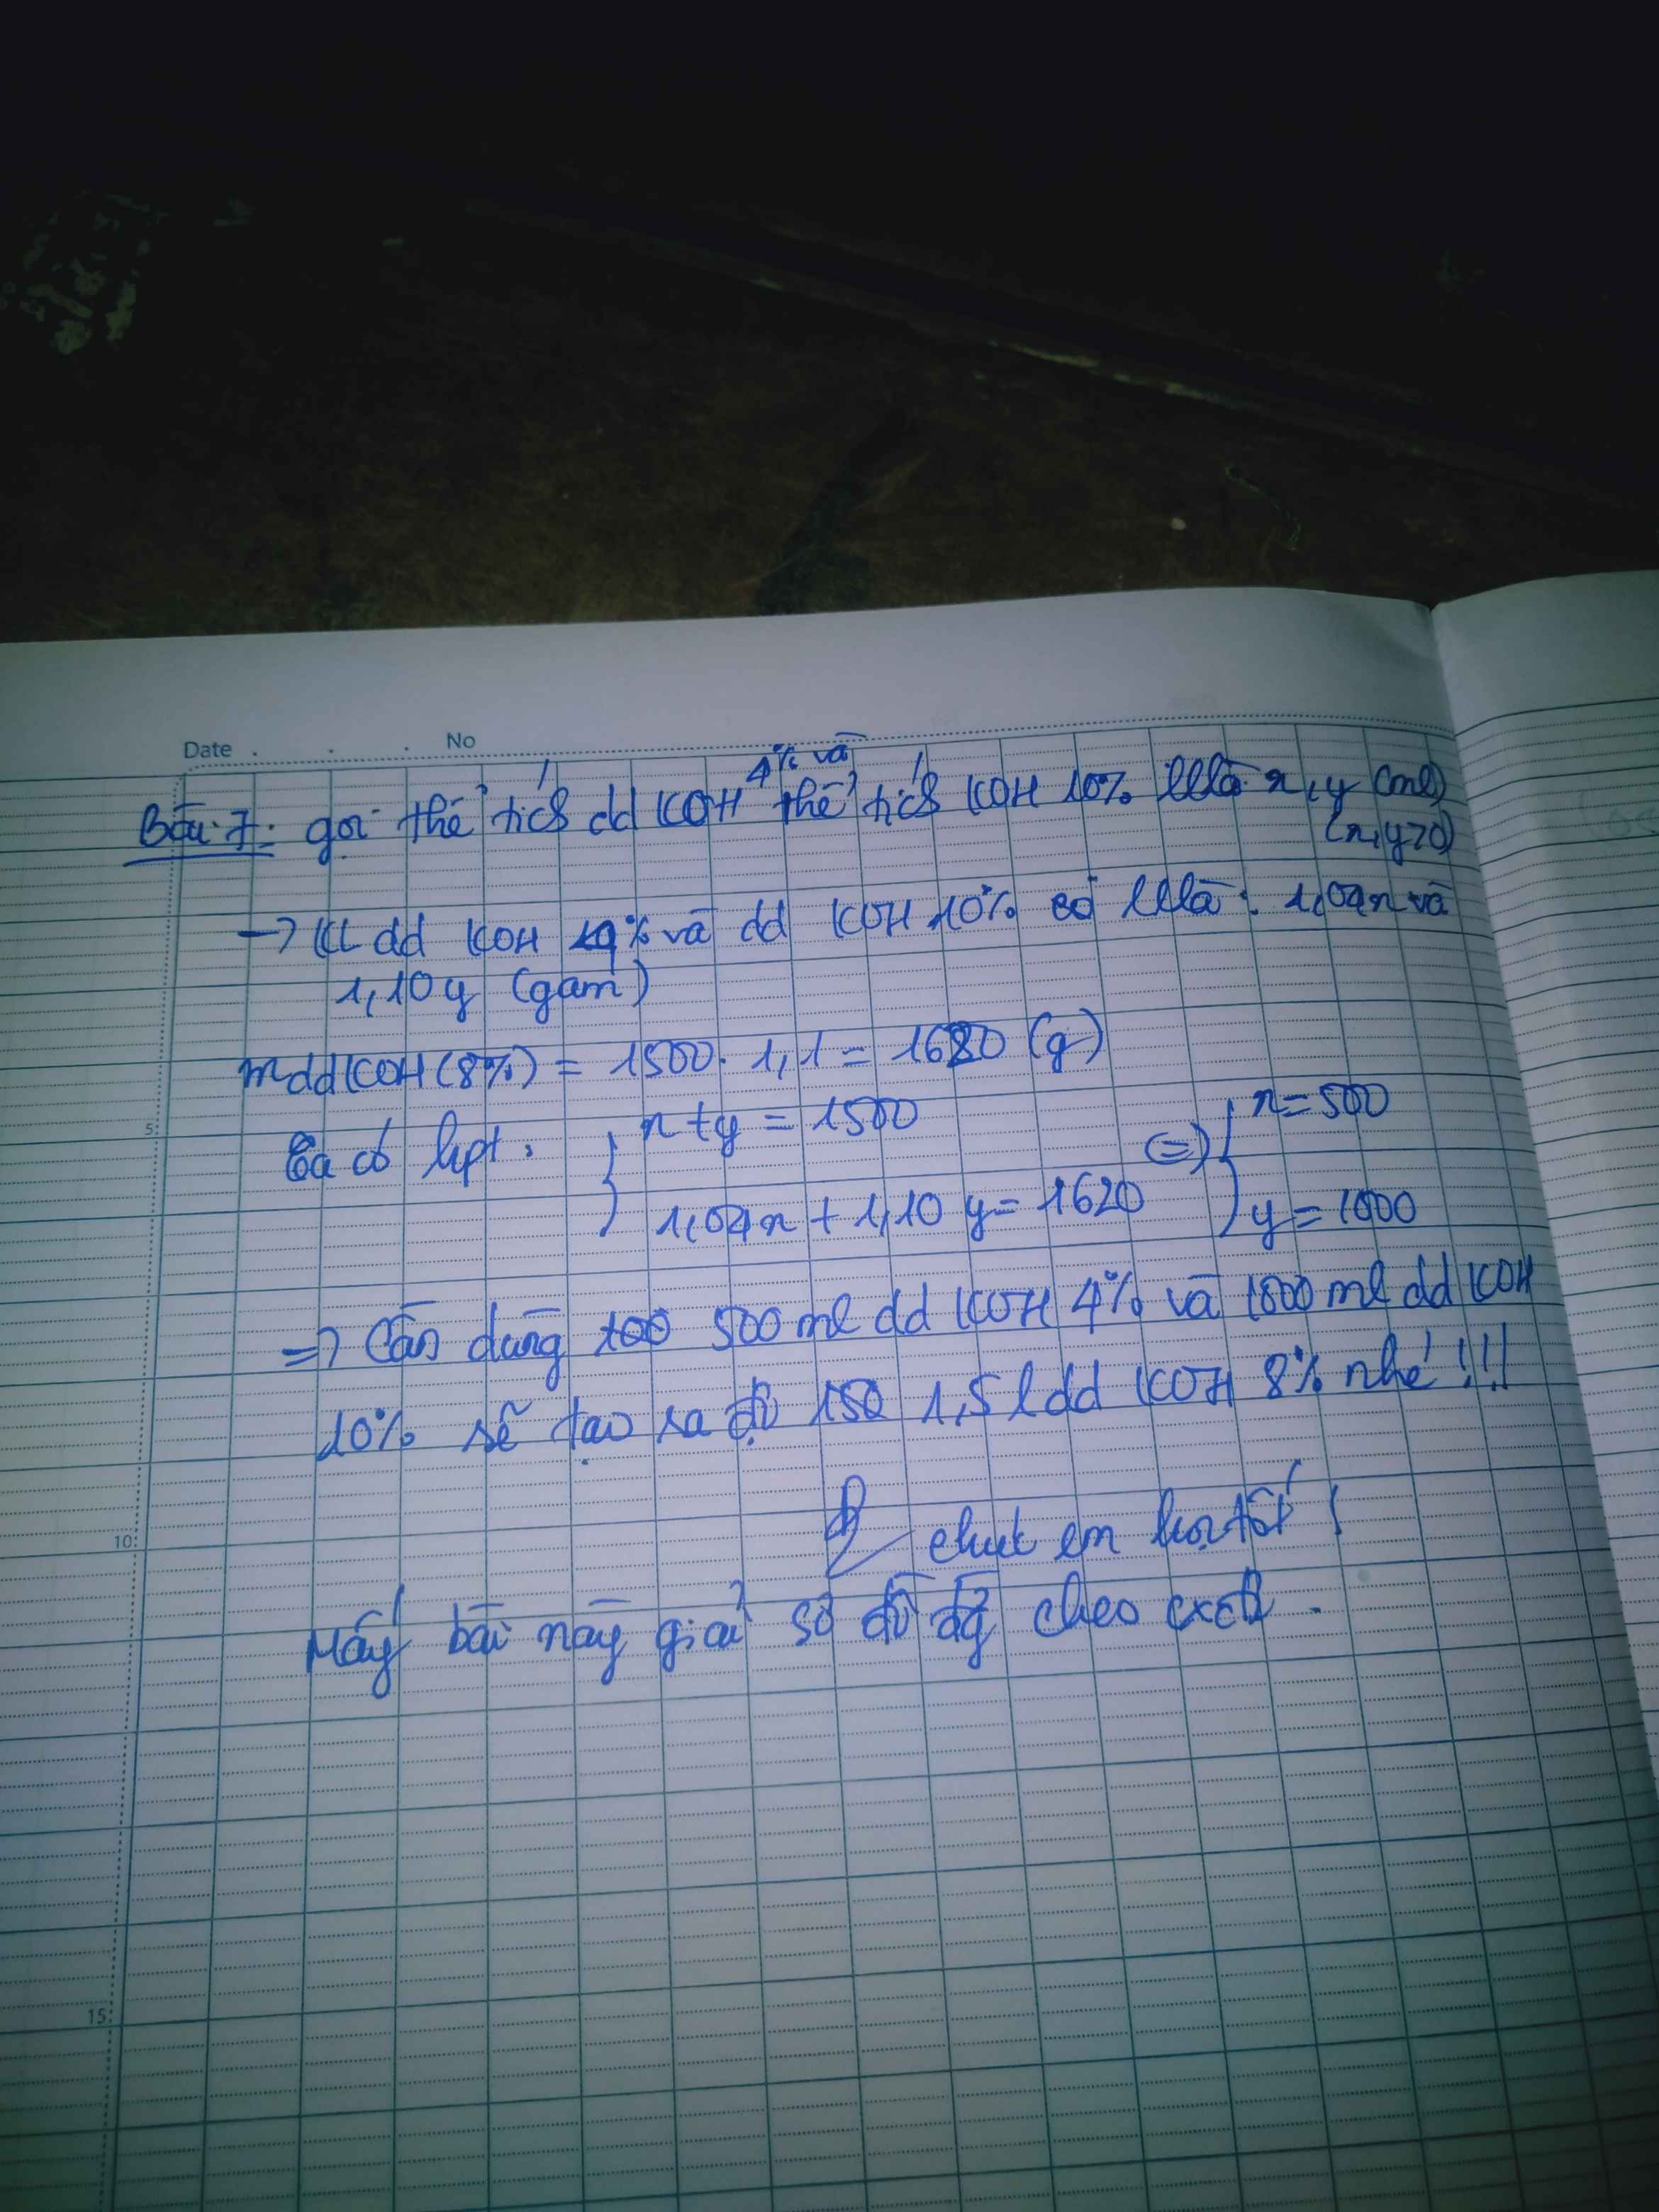 Date . . . No
4% và
Bài 7: gọi thể tích dd KOH thể tích KOH 10% lllà x, y (ml)
(x,y>0)
→ KL dd KOH 4% và dd KOH 10% có lllà : 1,04x và
1,10y (gam)
mddKOH(8%) = 1500. 1,1 = 1620 (g)
Ta có hpt :
x + y = 1500
1,04x + 1,10 y = 1620
(=)
x = 500
y = 1000
=> Cần dùng 500 ml dd KOH 4% và 1000 ml dd KOH
10% sẽ tạo ra đc 1,5 l dd KOH 8% nhé !!!
chúc em học tốt !
Mấy bài này giải sơ đồ đg chéo
5
10
15